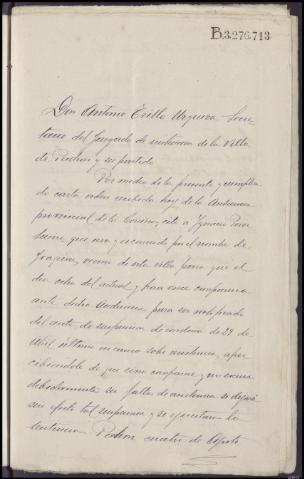 B.3.276.713
Don Antonio Trillo Urquiza Secre-
tario del Juzgado de instrucion de la Villa
de Padron y su partido
Por medio de la presente y cumplien
carta orden recibida hoy de la Audiencia
provincial de la Coruña, cito a Ignacio
que usa y es conocido por el nombre de
Joaquin, vecino de esta villa para que el
dia ocho del actual y hora once comparezca
ante dicha Audiencia para ser notificado
del auto de suspension de condena de 29 de
Abril ultimo en causa sobre, aper
cibiendole de que si no comparece y no escusa
debidamente su falta de asistencia se dejará
sin efecto tal suspension y se ejecutara la
sentencia. Padron cuatro de Agosto